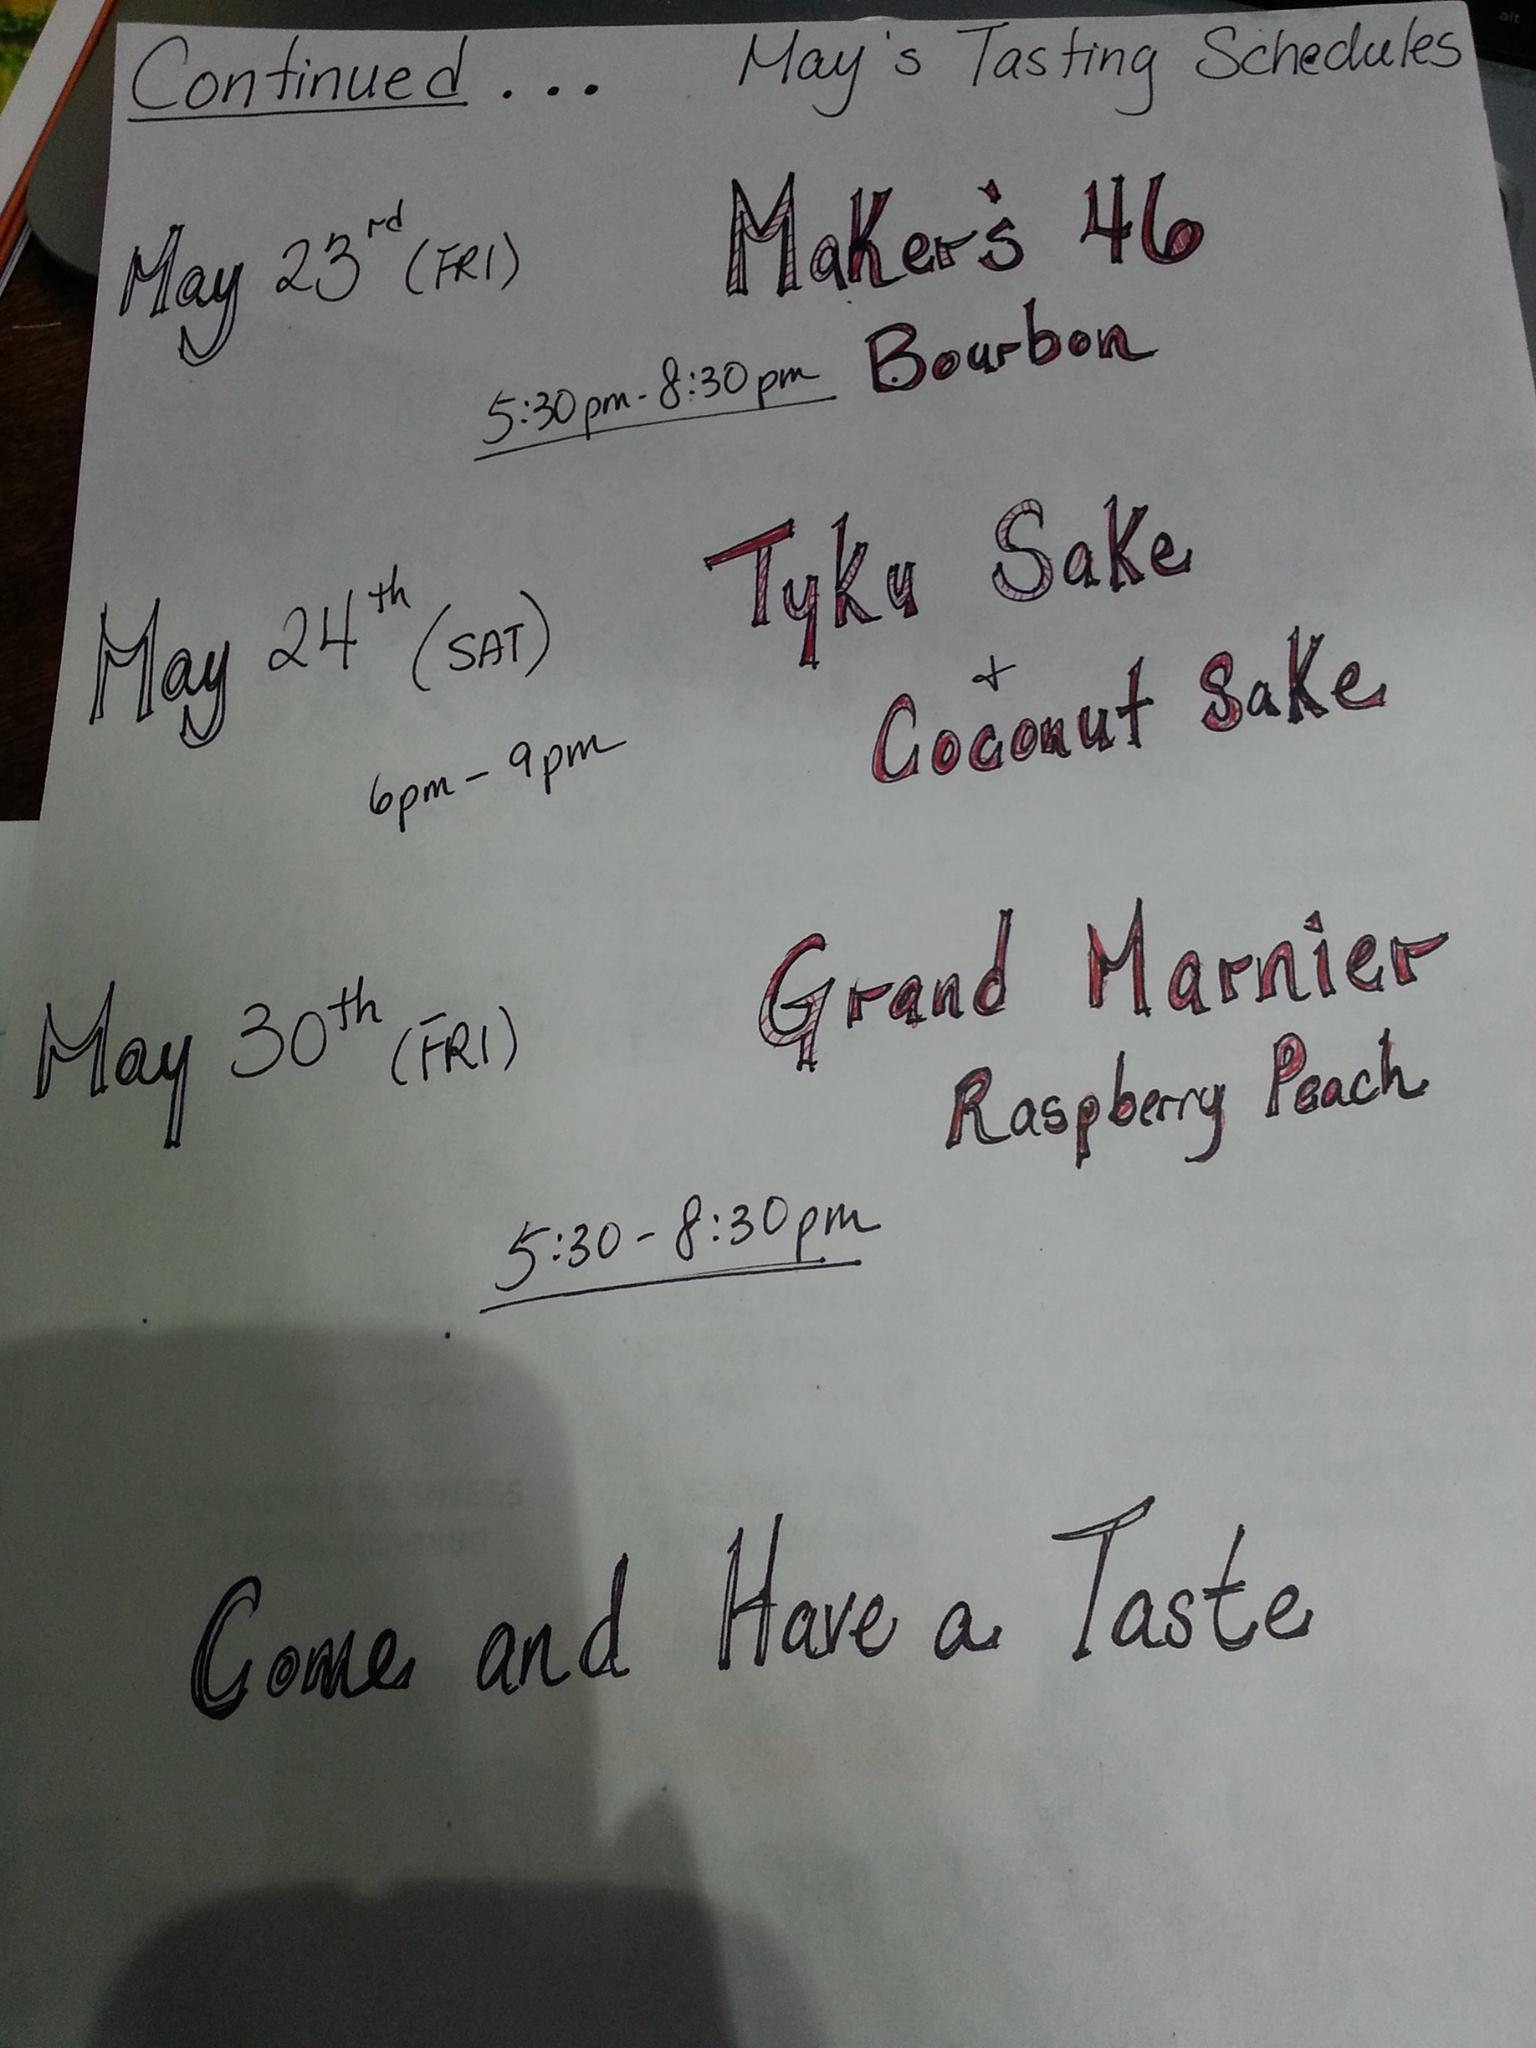 Continued ... May's Tasting Schedules
May 23rd (FRI) Maker's 46
5:30pm - 8:30pm Bourbon
May 24th (SAT) Tyku Sake
+
Coconut Sake
6pm - 9pm
May 30th (FRI) Grand Marnier
Raspberry Peach
5:30 - 8:30pm
Come and Have a Taste